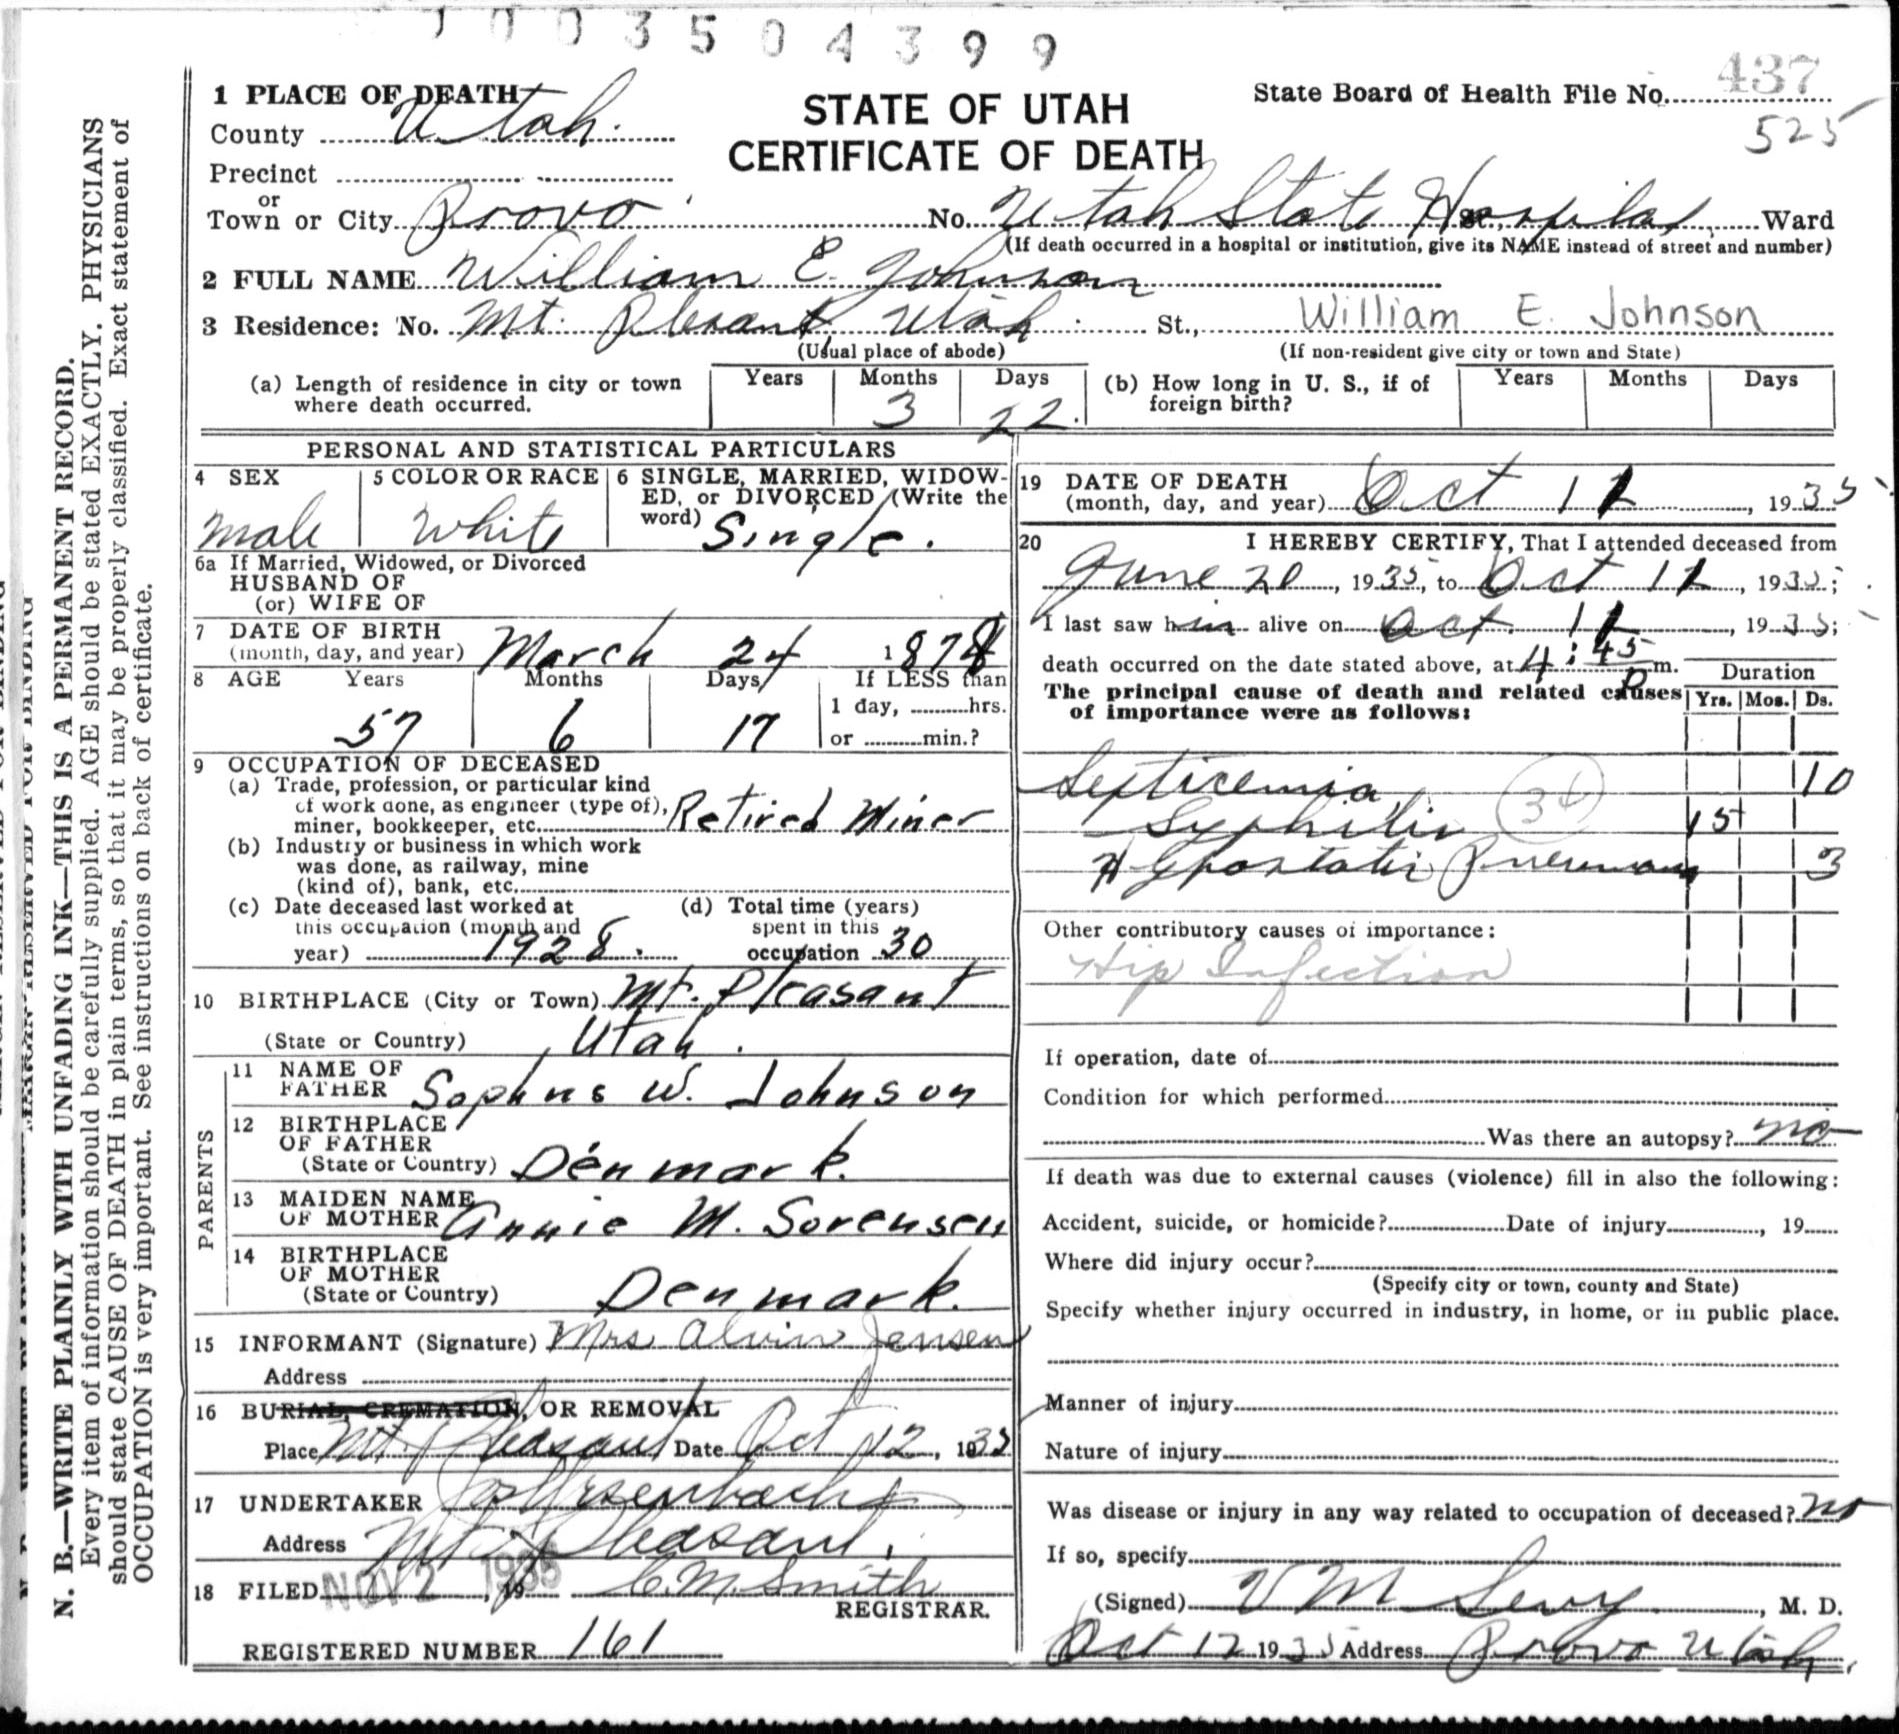 1003504399
1 PLACE OF DEATH
State Board of Health File No. 437
525
County Utah.
STATE OF UTAH
CERTIFICATE OF DEATH
Precinct
or
Town or City Provo No. Utah State Hospital St., Ward
(If death occurred in a hospital or institution, give its NAME instead of street and number)
2 FULL NAME William E. Johnson
3 Residence: No. Mt. Plesant Utah St., William E. Johnson
(Usual place of abode) (If non-resident give city or town and State)
(a) Length of residence in city or town where death occurred. Years Months 3 Days 22.
(b) How long in U. S., if of foreign birth? Years Months Days
PERSONAL AND STATISTICAL PARTICULARS
4 SEX
Male
5 COLOR OR RACE
White
6 SINGLE, MARRIED, WIDOWED, or DIVORCED (Write the word) Single.
6a If Married, Widowed, or Divorced
HUSBAND OF
(or) WIFE OF
7 DATE OF BIRTH
(month, day, and year) March 24 1878
8 AGE Years Months Days If LESS than
57 6 17
1 day, hrs.
or min.?
9 OCCUPATION OF DECEASED
(a) Trade, profession, or particular kind
of work done, as engineer (type of),
miner, bookkeeper, etc. Retired Miner
(b) Industry or business in which work
was done, as railway, mine
(kind of), bank, etc.
(c) Date deceased last worked at
this occupation (month and
year) 1928.
(d) Total time (years)
spent in this
occupation 30
10 BIRTHPLACE (City or Town) Mt. Pleasant
(State or Country) Utah.
PARENTS
11 NAME OF
FATHER Sophus W. Johnson
12 BIRTHPLACE
OF FATHER
(State or Country) Denmark.
13 MAIDEN NAME
OF MOTHER Annie M. Sorensen
14 BIRTHPLACE
OF MOTHER
(State or Country) Denmark.
15 INFORMANT (Signature) Mrs Alvin Jensen
Address
16 BURIAL, CREMATION, OR REMOVAL
Place Mt. Pleasant Date Oct 12, 1935
17 UNDERTAKER
Address Mt. Pleasant.
18 FILED NOV 2 1935, 19 C. M. Smith
REGISTRAR.
REGISTERED NUMBER 161
19 DATE OF DEATH
(month, day, and year) Oct 11, 1935
20 I HEREBY CERTIFY, That I attended deceased from
June 20, 1935, to Oct 11, 1935;
I last saw him alive on Oct. 11, 1935;
death occurred on the date stated above, at 4:45 p m.
Duration
The principal cause of death and related causes
of importance were as follows:
Yrs. Mos. Ds.
Septicemia 10
Syphilis 15
34
Hypostatic Pneumonia 3
Other contributory causes of importance:
Hip Infection
If operation, date of
Condition for which performed
Was there an autopsy? no
If death was due to external causes (violence) fill in also the following:
Accident, suicide, or homicide? Date of injury, 19
Where did injury occur?
(Specify city or town, county and State)
Specify whether injury occurred in industry, in home, or in public place.
Manner of injury
Nature of injury
Was disease or injury in any way related to occupation of deceased? no
If so, specify
(Signed) V M Sevy, M. D.
Oct 12 1935 Address Provo Utah.
N. B.—WRITE PLAINLY WITH UNFADING INK—THIS IS A PERMANENT RECORD.
Every item of information should be carefully supplied. AGE should be stated EXACTLY. PHYSICIANS
should state CAUSE OF DEATH in plain terms, so that it may be properly classified. Exact statement of
OCCUPATION is very important. See instructions on back of certificate.